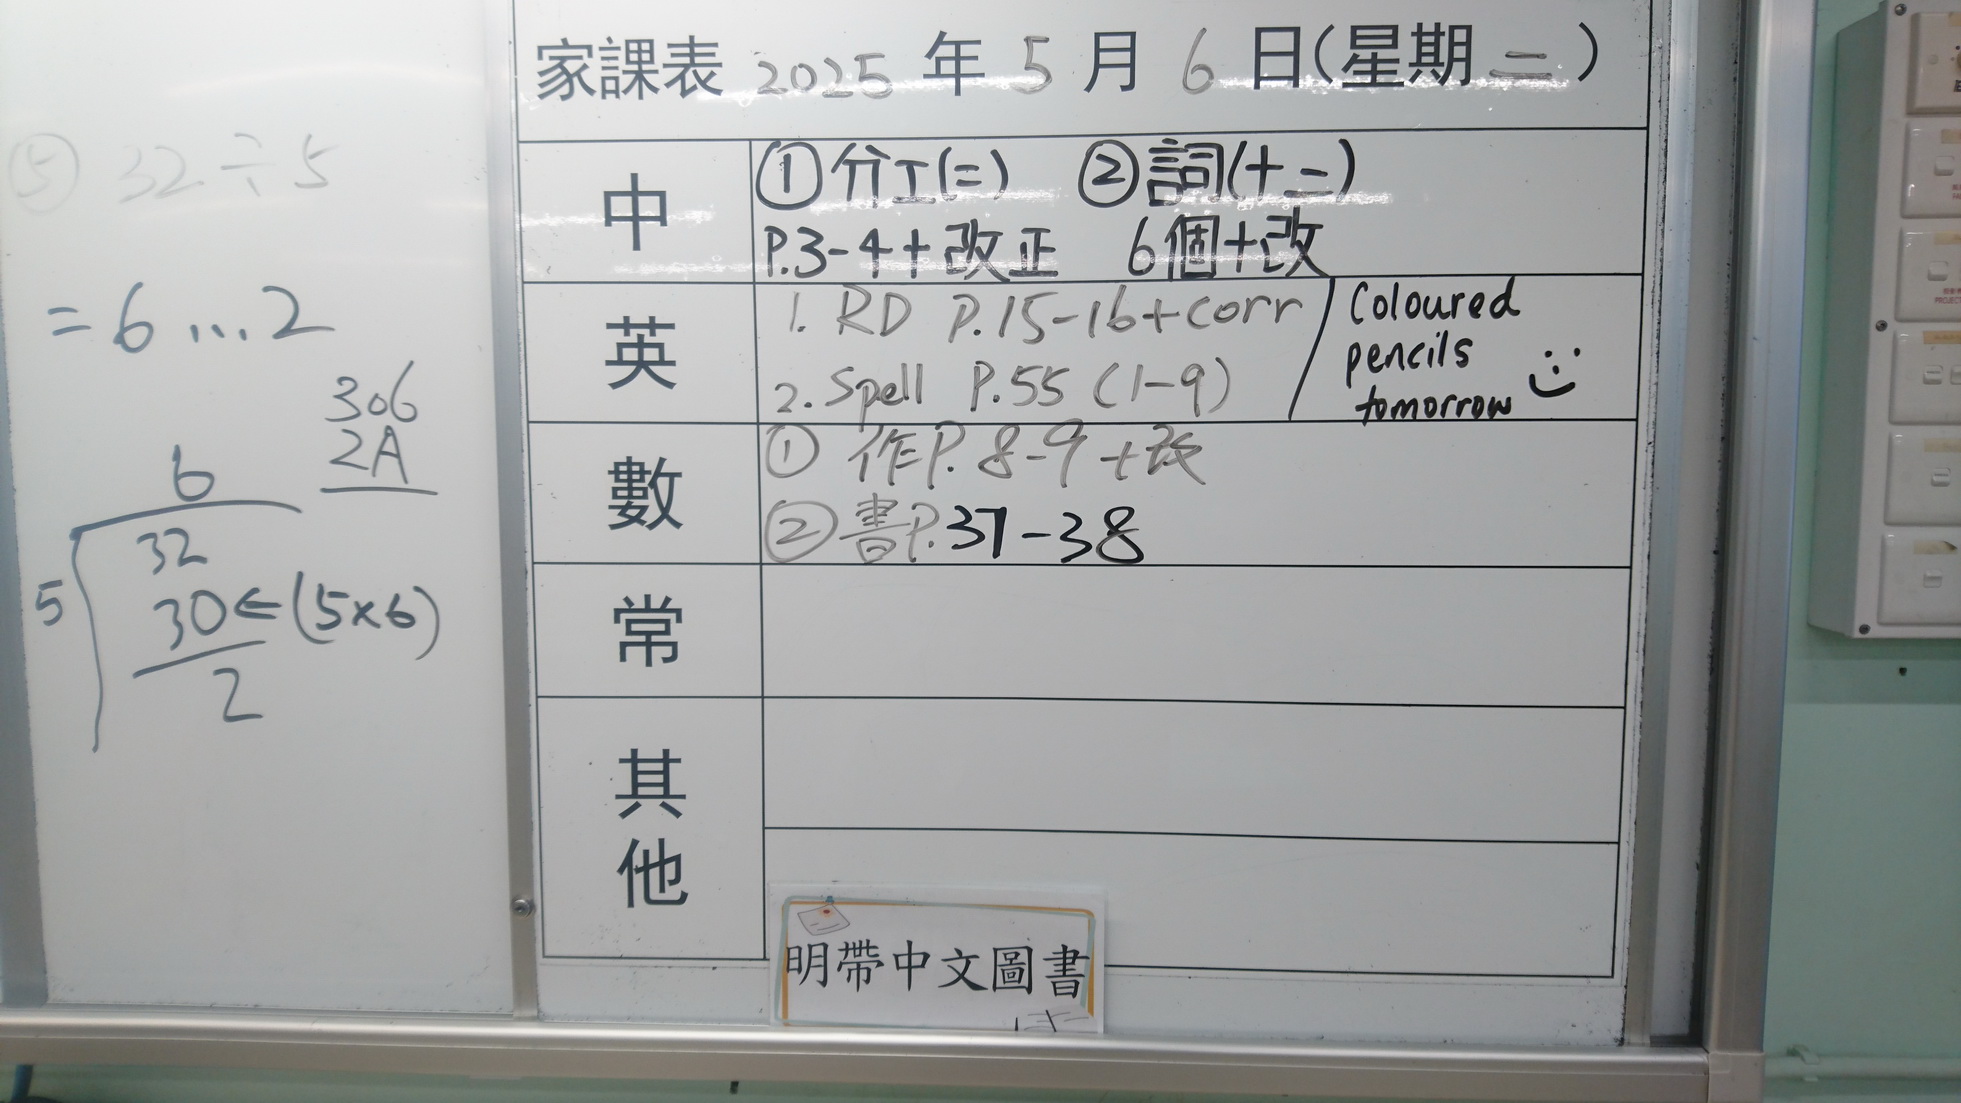 ⑤ 32÷5
= 6 ... 2
306
2A
6
32
5
30←(5×6)
2
家課表 2025 年 5 月 6 日(星期二)
中
①分工(二) ②詞(十二)
P.3-4+改正 6個+改
英
1. RD P.15-16+corr
2. Spell P.55 (1-9)
Coloured
pencils
tomorrow
數
① 作P.8-9+改
② 書P.37-38
常
其
他
明帶中文圖書